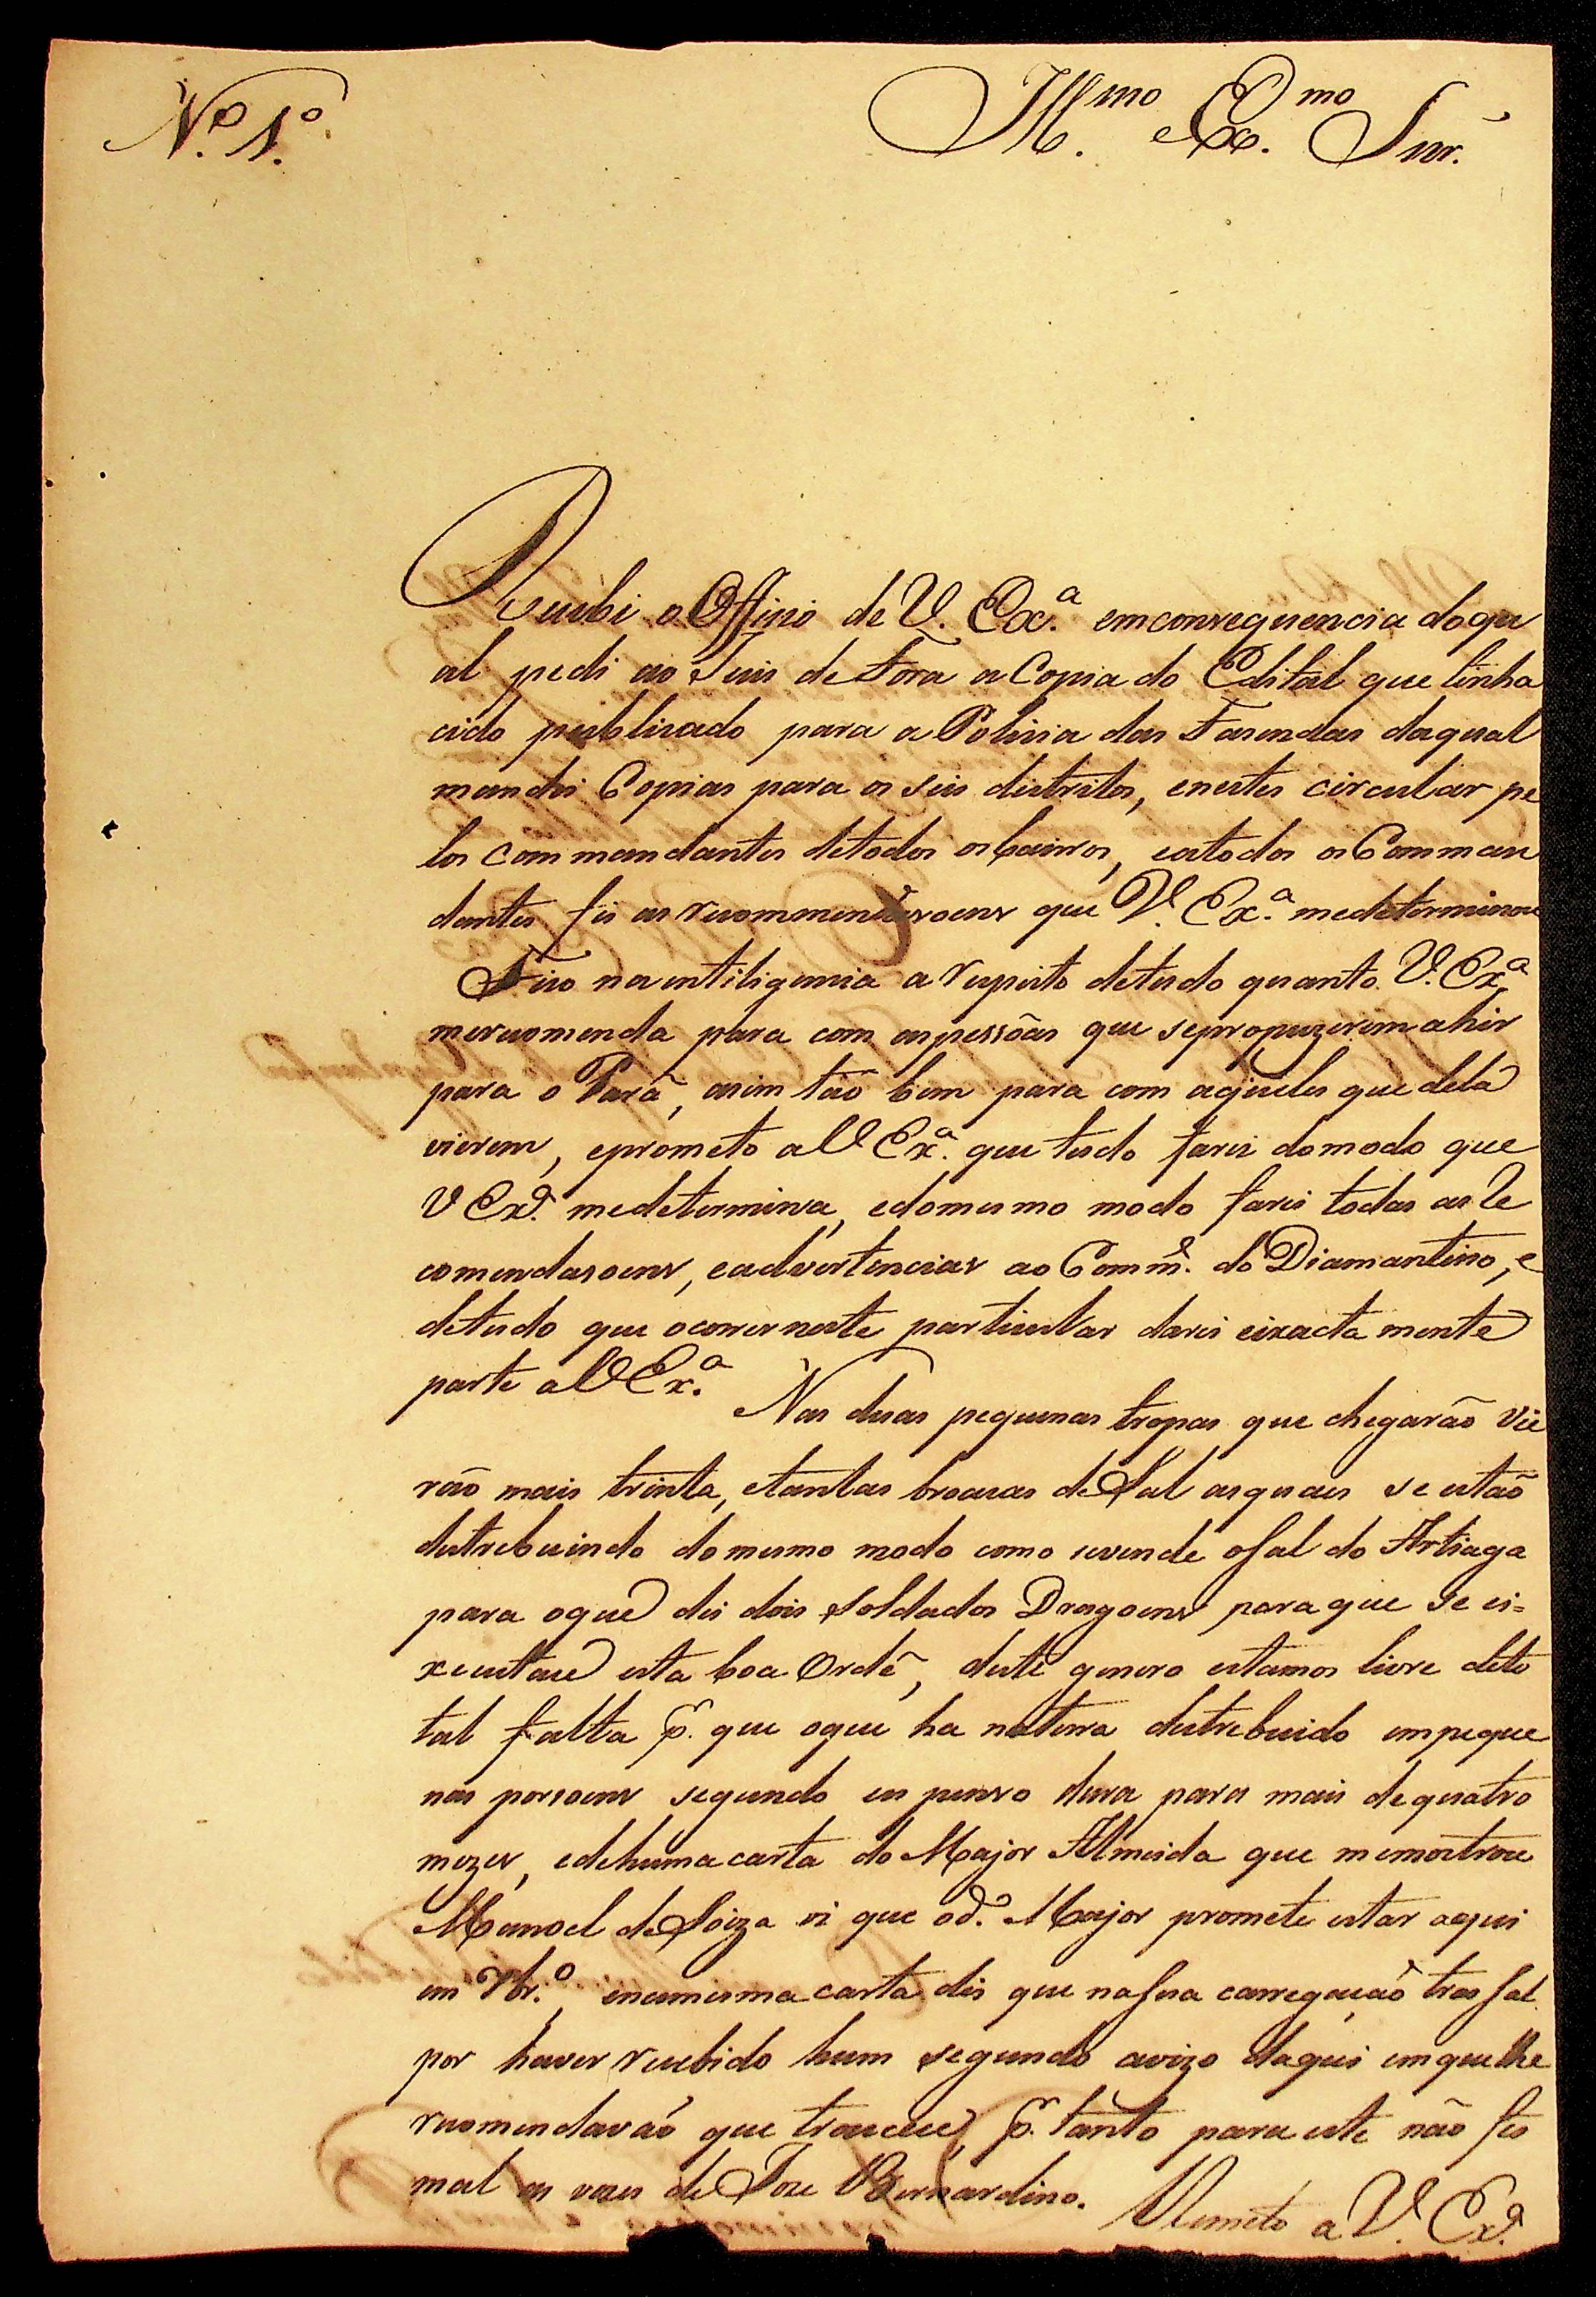 N.º 1.º
Ill.mo e Ex.mo Snr.
Recebi o Officio de V. Ex.ª emconsequencia doqu
al pedi ao Juis de Fora a Copia do Edital que tinha
cido publicado para a Policia das Fasendas daqual
mandei Copias para os seis distritos, enestes circular pe
los commandantes detodos osbairros, eatodos osComman
dantes fis as recommendasoens que V. Ex.ª medeterminou
Fico na intiligencia a respeito detudo quanto V. Ex.ª
merecomenda para com aspessôas que sepropuzerem ahir
para o Pará, asim táo bem para com aqueles que delá
vierem, eprometo a V Ex.ª que tudo farei domodo que
V Ex.ª medetermina, edomesmo modo farei todas as Re
comendasoens, eadvertencias ao Comm.e do Diamantino, e
detudo que ocorrer neste particular darei eixacta mente
parte a V Ex.ª
Nas duas pequenas tropas que chegarão vie
rão mais trinta, etantas broacas de Sal asquaes se estão
destrebuindo domesmo modo como sevende osal do Artiaga
para oque dei dois Soldados Dragoens paraque se ei=
xecutace esta boa Ordẽ, deste genero estamos livre deto
tal falta p.r que oque ha naterra destrebuido empeque
nas porsoens segundo eu penso dura para mais dequatro
mezes, edehuma carta do Major Almeida que memostrou
Manoel de Soiza vi que od.º Major promete estar aqui
em 9br.º, enamesma carta dis que nasua carregaçaõ tras sal
por haver recebido hum segundo avizo daqui emquelhe
recomendavaõ que troucece, p.r tanto para este não fes
mal as vozes de Joze Bernardino.
Remeto a V. Ex.ª